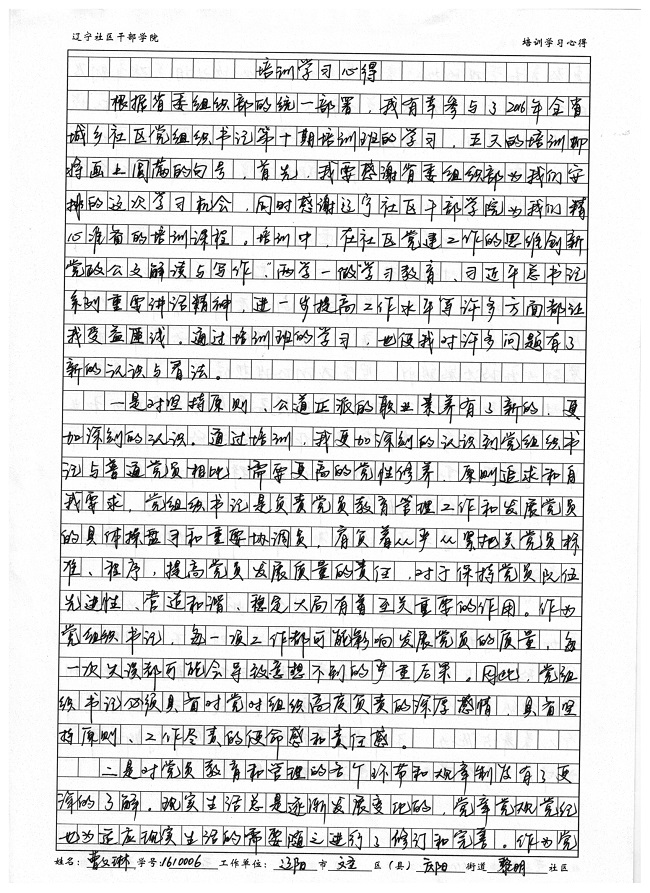 辽宁社区干部学院 培训学习心得
培训学习心得
根据省委组织部的统一部署，我有幸参与了2016年全省
城乡社区党组织书记第十期培训班的学习，五天的培训即
将画上圆满的句号，首先，我要感谢省委组织部为我们安
排的这次学习机会，同时感谢辽宁社区干部学院为我们精
心准备的培训课程。培训中，在社区党建工作的思维创新
党的公文解读与写作，“两学一做”学习教育、习近平总书记
系列重要讲话精神，进一步提高工作水平等许多方面都让
我受益匪浅。通过培训班的学习，也使我对许多问题有了
新的认识与看法。
一是对坚持原则、公道正派的职业素养有了新的、更
加深刻的认识。通过培训，我更加深刻的认识到党组织书
记与普通党员相比，需要更高的党性修养、原则追求和自
我要求，党组织书记是负责党员教育管理工作和发展党员
的具体操盘手和重要协调员，肩负着从严从紧把关党员标
准、程序，提高党员发展质量的责任，对于保持党员队伍
先进性、营造和谐、稳定大局有着至关重要的作用。作为
党组织书记，每一项工作都可能影响发展党员的质量，每
一次失误都可能会导致意想不到的严重后果。因此，党组
织书记必须具有对党对组织高度负责的深厚感情，具有坚
持原则、工作尽责的使命感和责任感。
二是对党员教育和管理的各个环节和规章制度有了更
深的了解。现实生活总是逐渐发展变化的，党章党规党纪
也为适应现实生活的需要随之进行了修订和完善。作为党
姓名：曹文琳 学号：1610006 工作单位：辽阳 市 文圣 区（县） 庆阳 街道 黎明 社区